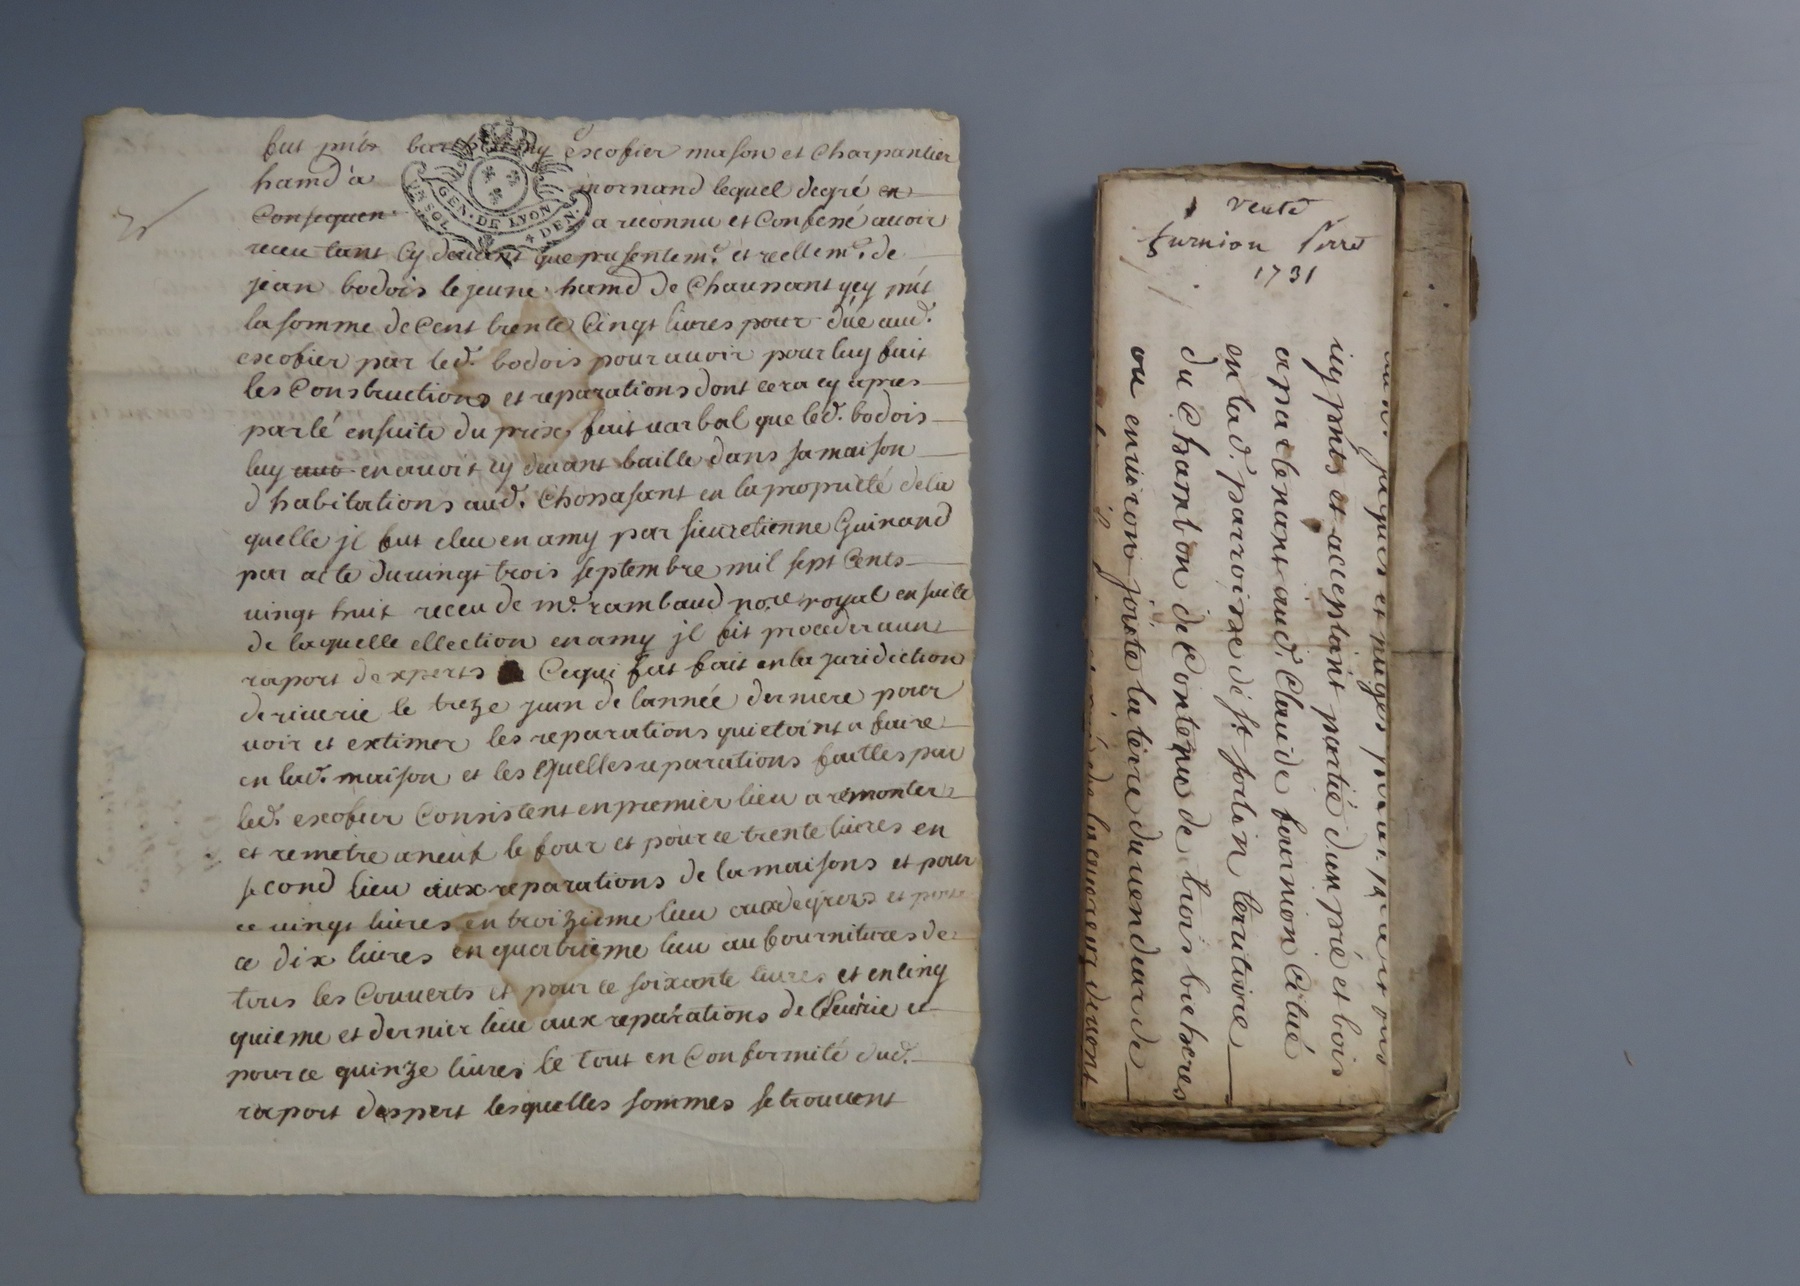 fut pnt barthelemy escofier mason et Charpantier
hamd a mornand lequel degré en
Consequen a reconnu et Confessé avoir
receu tant cy devant que presentem.t et reellem.t de
jean bodois le jeune hamd de Chaunant ycy pnt
la somme de Cent trente Cinqt livres pour düe aud.
escofier par led. bodois pour avoir pour luy fait
les Constructions et reparations dont cera cy apres
parlé ensuite du prix fait varbal que led. bodois
luy en avoit cy devant baille dans sa maison
d habitations aud. en la propriété de la
quelle jl fut eleu en amy par sieur etienne Guinand
par acte du vingt trois septembre mil sept Cents
vingt huit receu de m.e rambaud no.re royal ensuite
de laquelle ellection en amy jl fit proceder a un
raport dexperts Cequi fut fait en la juridiction
de riverie le treze juin de lannée derniere pour
voir et extimer les reparations qui etoint a faire
en lad. maison et les Quelles reparations faittes par
led. escofier Consistent en premier lieu a remonter
et remetre a neuf le four et pour ce trente livres en
second lieu aux reparations de la maisons et pour
ce vingt livres en troizieme lieu aux degrers et pour
ce dix livres en quatrieme lieu au fournitures de
tous les Couverts et pour ce soixante livres et en cinq
quieme et dernier lieu aux reparations de l'Ecurie et
pour ce quinze livres le tout en Conformité dud.
raport despert lesquelles sommes se trouvent
GEN. DE LYON
UN SOL 4 DEN.
vente
furnion
1731
jaques et
icy pnts et acceptant partie d'un pré et bois
apartenant aud. Claude fournion Citué
en lad. parroisse de st. territoire
du Chambon de Contenue de trois bicheres
ou environ joiste la terre du vendeur de